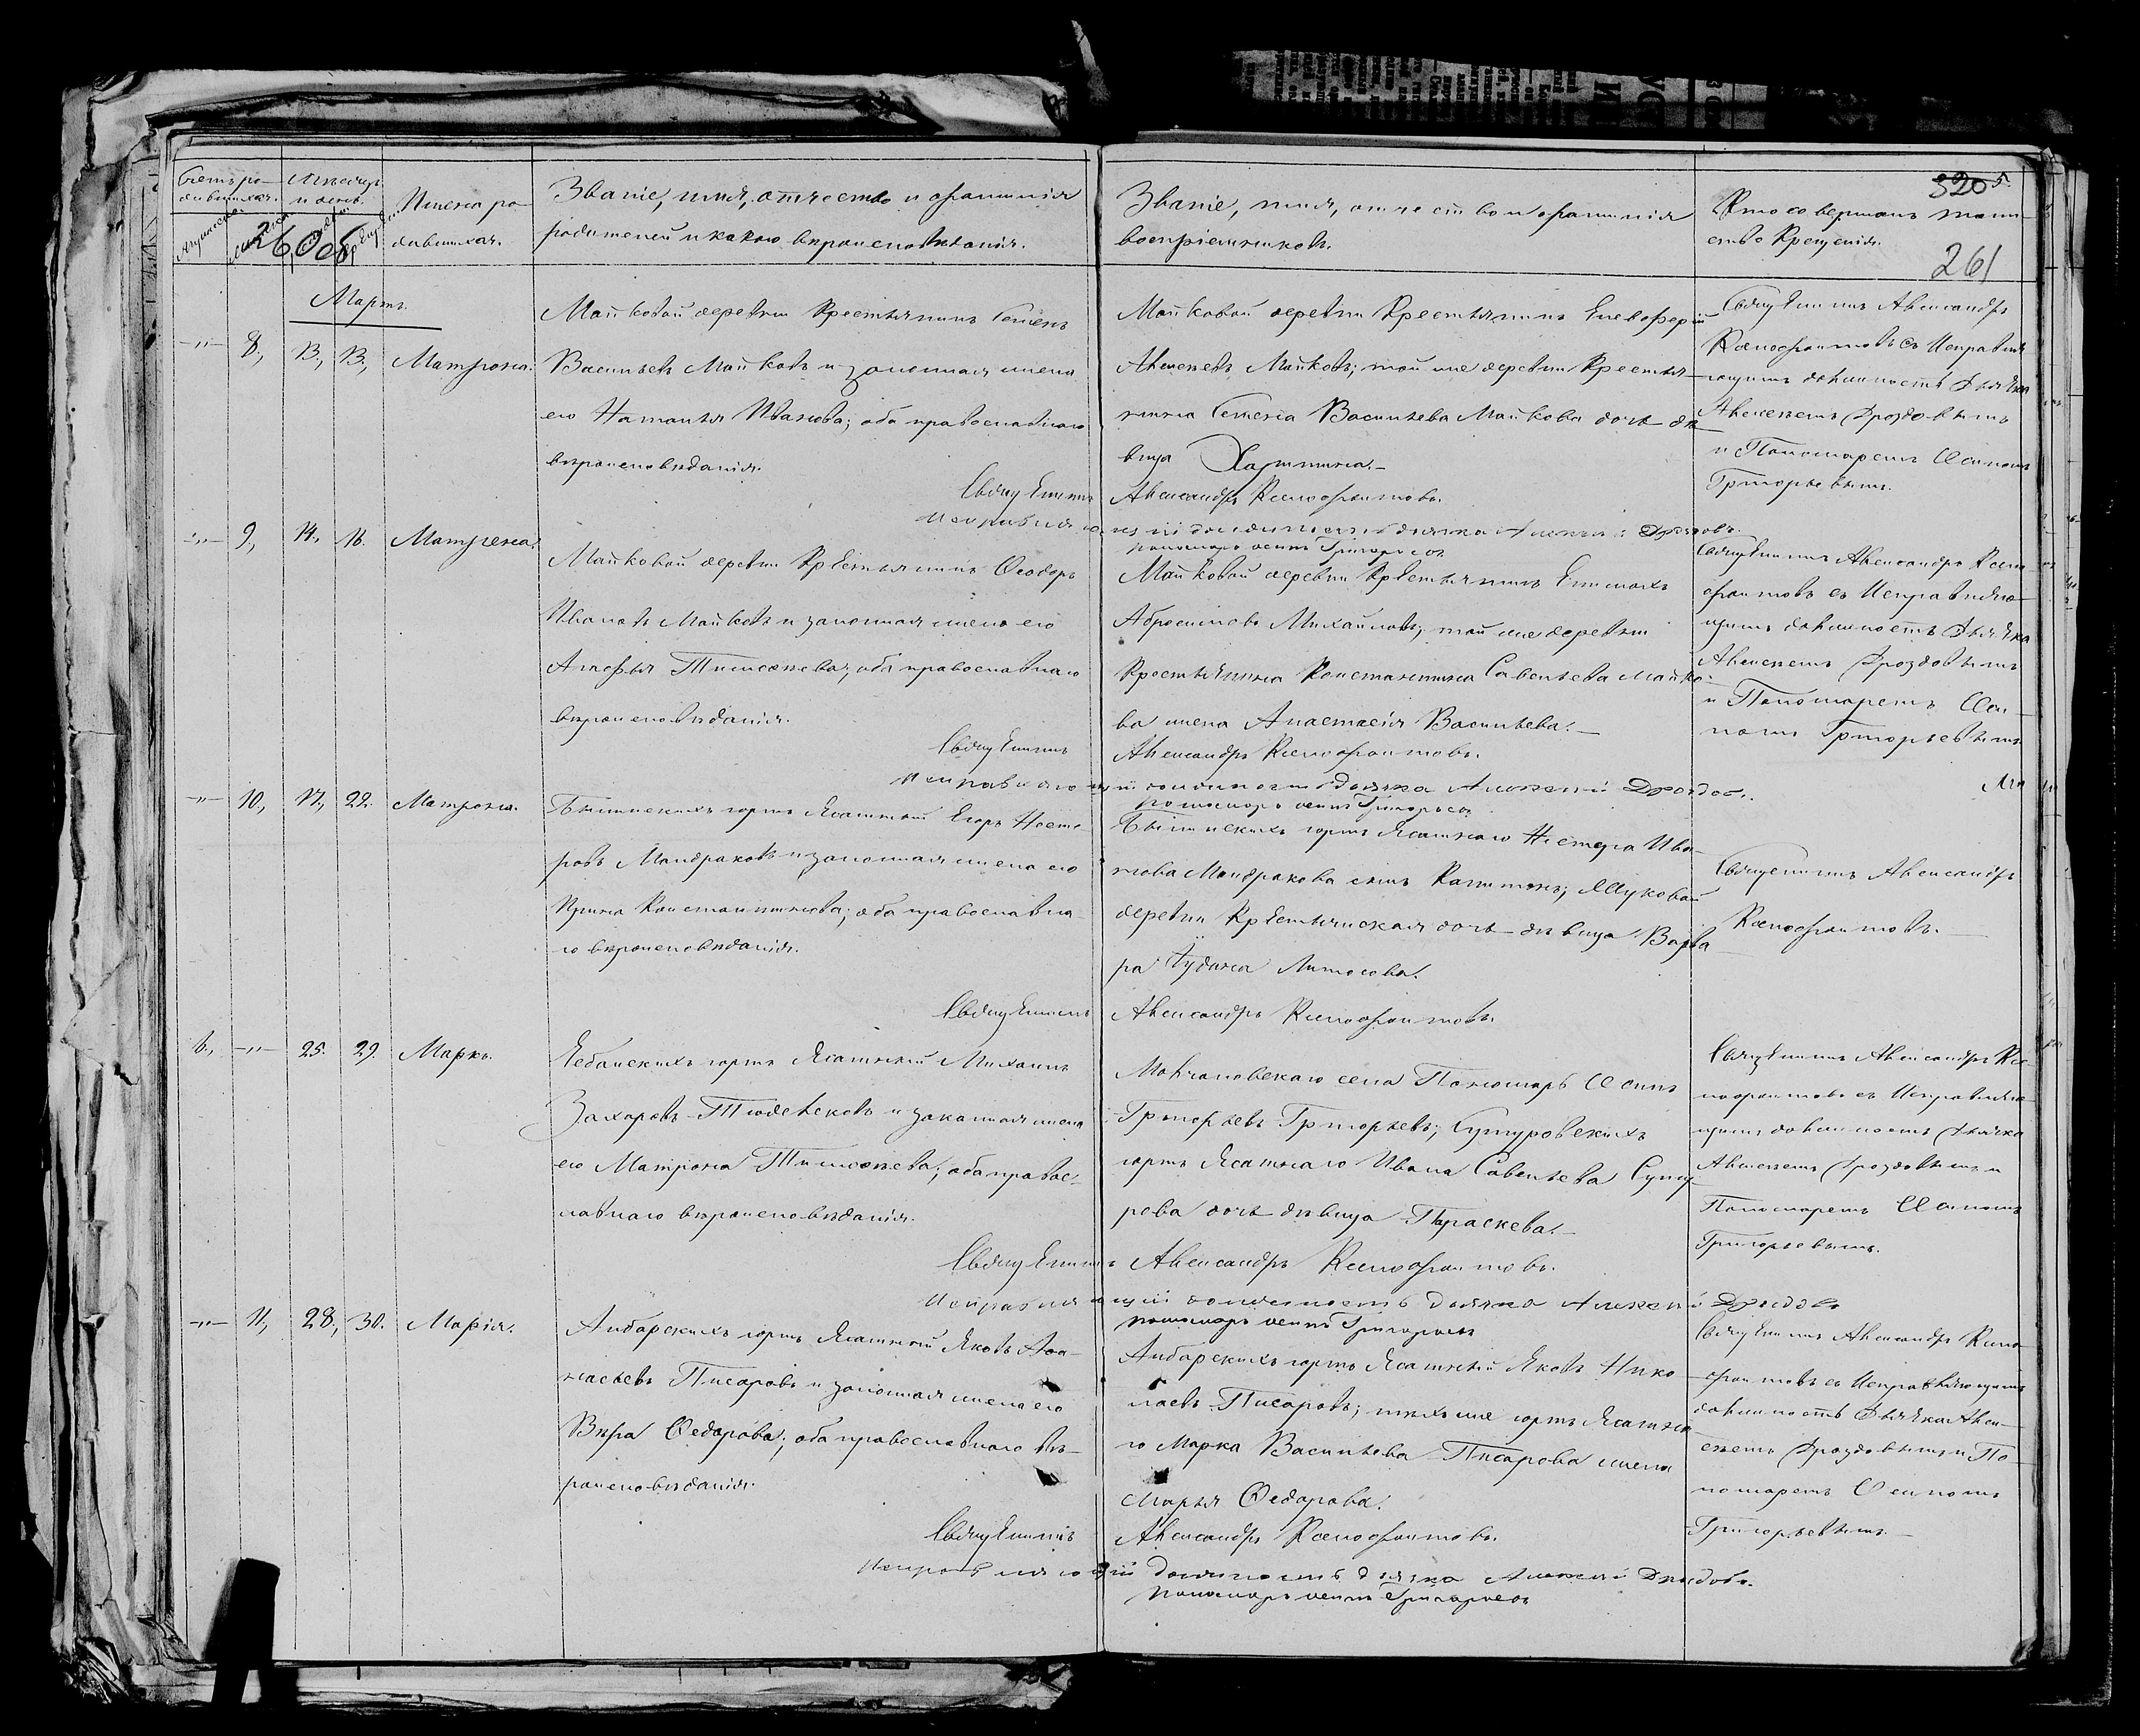 Счетъ ро-
дившихся.
Мѣсяцъ
и день.
Имена ро-
дившихся.
Званіе, имя, отчество и фамилія
родителей и какого вѣроисповѣданія.
Званіе, имя, отчество и фамилія
воспріемниковъ.
Кто совершалъ таин-
ство Крещенія.
320
261
Мартъ.
-„- 8., 13., 13., Матрона.
Майковой деревни Крестьянинъ Семенъ
Васильевъ Майковъ и законная жена
его Наталья Иванова; оба православнаго
вѣроисповѣданія.
Майковой деревни Крестьянинъ Елевферій
Алексеевъ Майковъ; той же деревни Крестья-
нина Семена Васильева Майкова дочь дѣ-
вица Харитина.-
Священникъ Александръ
Ксенофонтовъ съ Исправля-
ющимъ должность Дьячка
Алексеемъ Дроздовымъ
и Пономаремъ Осипомъ
Григорьевымъ.
Священникъ Александръ Ксенофонтовъ.
Исправляющій должность дьячка Алексей Дроздовъ.
пономарь осипъ Григорьевъ
-„- 9., 14., 16. Матрена.
Майковой деревни Крестьянинъ Ѳеодоръ
Ивановъ Майковъ и законная жена его
Агафья Тимоѳеева; оба православнаго
вѣроисповѣданія.
Майковой деревни Крестьянинъ Епимахъ
Абросимовъ Михайловъ; той же деревни
Крестьянина Константина Савельева Майко-
ва жена Анастасія Васильева.-
Священникъ Александръ Ксено-
фонтовъ съ Исправляю-
щимъ должность Дьячка
Алексеемъ Дроздовымъ
и Пономаремъ Оси-
помъ Григорьевымъ
Священникъ Александръ Ксенофонтовъ.
Исправляющій должность дьячка Алексей Дроздовъ.
пономарь осипъ Григорьевъ
-„- 10., 17., 22. Матрона.
юртъ Ясашный Егоръ Несте-
ровъ Мандраковъ и законная жена его
Ирина Константинова; оба православна-
го вѣроисповѣданія.
юртъ Ясашнаго Нестера Ива-
нова Мандракова сынъ Капитонъ;
деревни Крестьянская дочь дѣвица Варва-
ра
Священникъ Александръ
Ксенофонтовъ.
Священникъ Александръ Ксенофонтовъ.
6., -„- 25. 29. Маркъ.
юртъ Ясашный Михаилъ
Захаровъ и законная жена
его Матрона Тимоѳеева; оба правос-
лавнаго вѣроисповѣданія.
села Пономарь Осипъ
Григорьевъ Григорьевъ;
юртъ Ясашнаго Ивана Савельева
дочь дѣвица Параскева.-
Священникъ Александръ Ксе-
нофонтовъ съ Исправляю-
щимъ должность Дьячка
Алексеемъ Дроздовымъ и
Пономаремъ Осипомъ
Григорьевымъ.
Священникъ Александръ Ксенофонтовъ.
Исправляющій должность дьячка Алексей Дроздовъ
пономарь осипъ Григорьевъ
-„- 11., 28., 30. Марія.
юртъ Ясашный Яковъ Аѳа-
насьевъ Писаровъ и законная жена его
Вѣра Ѳедорова; оба православнаго вѣ-
роисповѣданія.
юртъ Ясашный Яковъ Нико-
лаевъ Писаровъ; тѣхъ же юртъ Ясашна-
го Марка Васильева Писарова жена
Марья Ѳедорова.
Священникъ Александръ Ксено-
фонтовъ съ Исправляющимъ
должность Дьячка Алек-
сеемъ Дроздовымъ и По-
номаремъ Осипомъ
Григорьевымъ.-
Священникъ Александръ Ксенофонтовъ.
Исправляющій должность дьячка Алексей Дроздовъ.
пономарь осипъ Григорьевъ